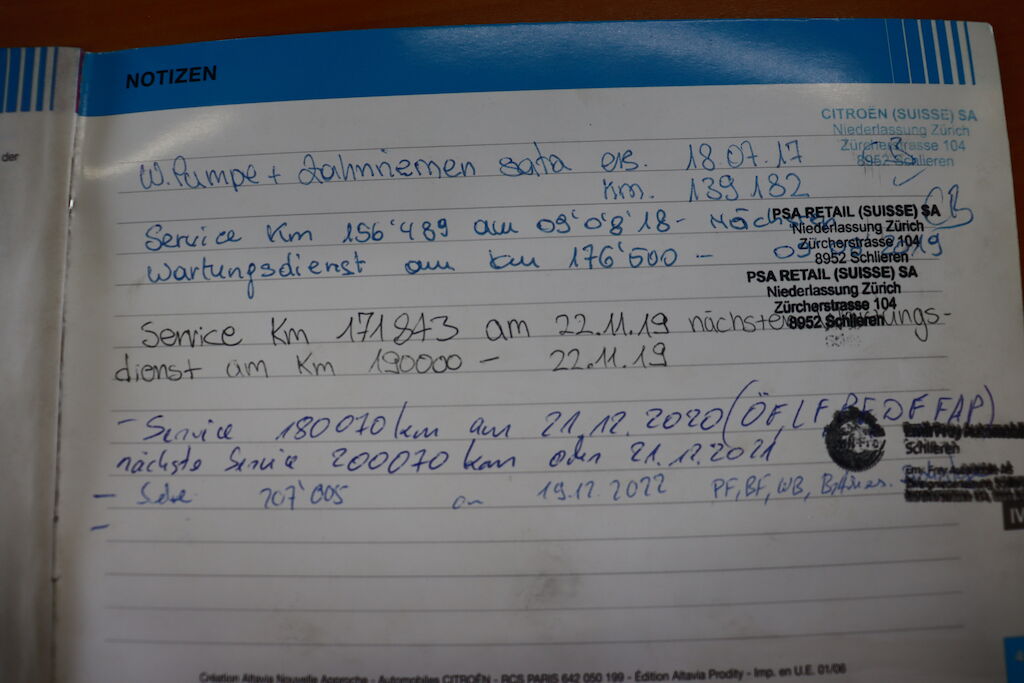 NOTIZEN
der
CITROËN (SUISSE) SA
Niederlassung Zürich
Zürcherstrasse 104
8952 Schlieren
W. Pumpe + Zahnriemen satz ers. 18.07.17
Km. 139 182
Service Km 156'489 am 09'08'18 - Nächster
PSA RETAIL (SUISSE) SA
Niederlassung Zürich
Zürcherstrasse 104
8952 Schlieren
Wartungsdienst am km 176'500 -
PSA RETAIL (SUISSE) SA
Niederlassung Zürich
Zürcherstrasse 104
8952 Schlieren
Service Km 171843 am 22.11.19 nächster
dienst am Km 190000 - 22.11.19
- Service 180070 km am 21.12.2020 (ÖF, LF, BF, DF, FAP)
Schlieren
nächste Service 200070 km oder 21.12.2021
- 207'005 19.12.2022 PF, BF, WB,
-
IV
Création Altavia Nouvelle Approche - Automobiles CITROËN - RCS PARIS 642 050 199 - Édition Altavia Prodity - Imp. en U.E. 01/06